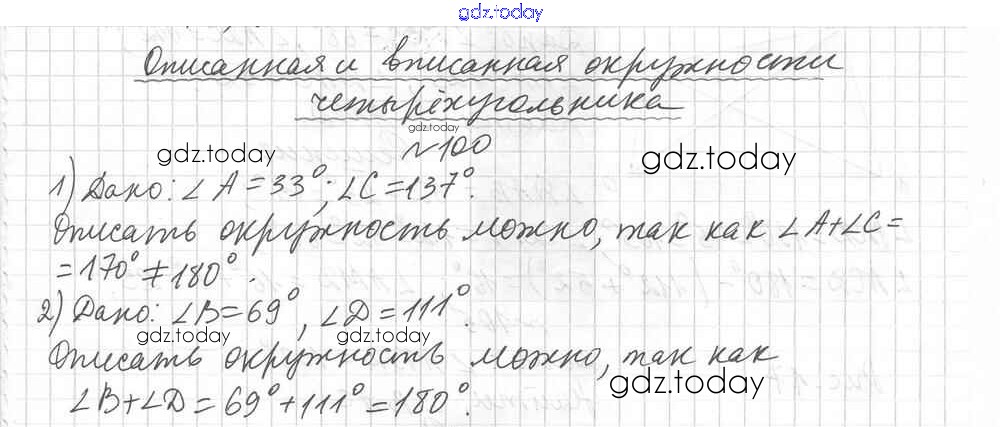 gdz.today
Описанная и вписанная окружности
четырёхугольника
gdz.today
№100
gdz.today
gdz.today
1) Дано: ∠A = 33°; ∠C = 137°.
Описать окружность можно, так как ∠A+∠C =
= 170° ≠ 180°.
2) Дано: ∠B = 69°, ∠D = 111°.
gdz.today
gdz.today
Описать окружность можно, так как
gdz.today
∠B + ∠D = 69° + 111° = 180°.